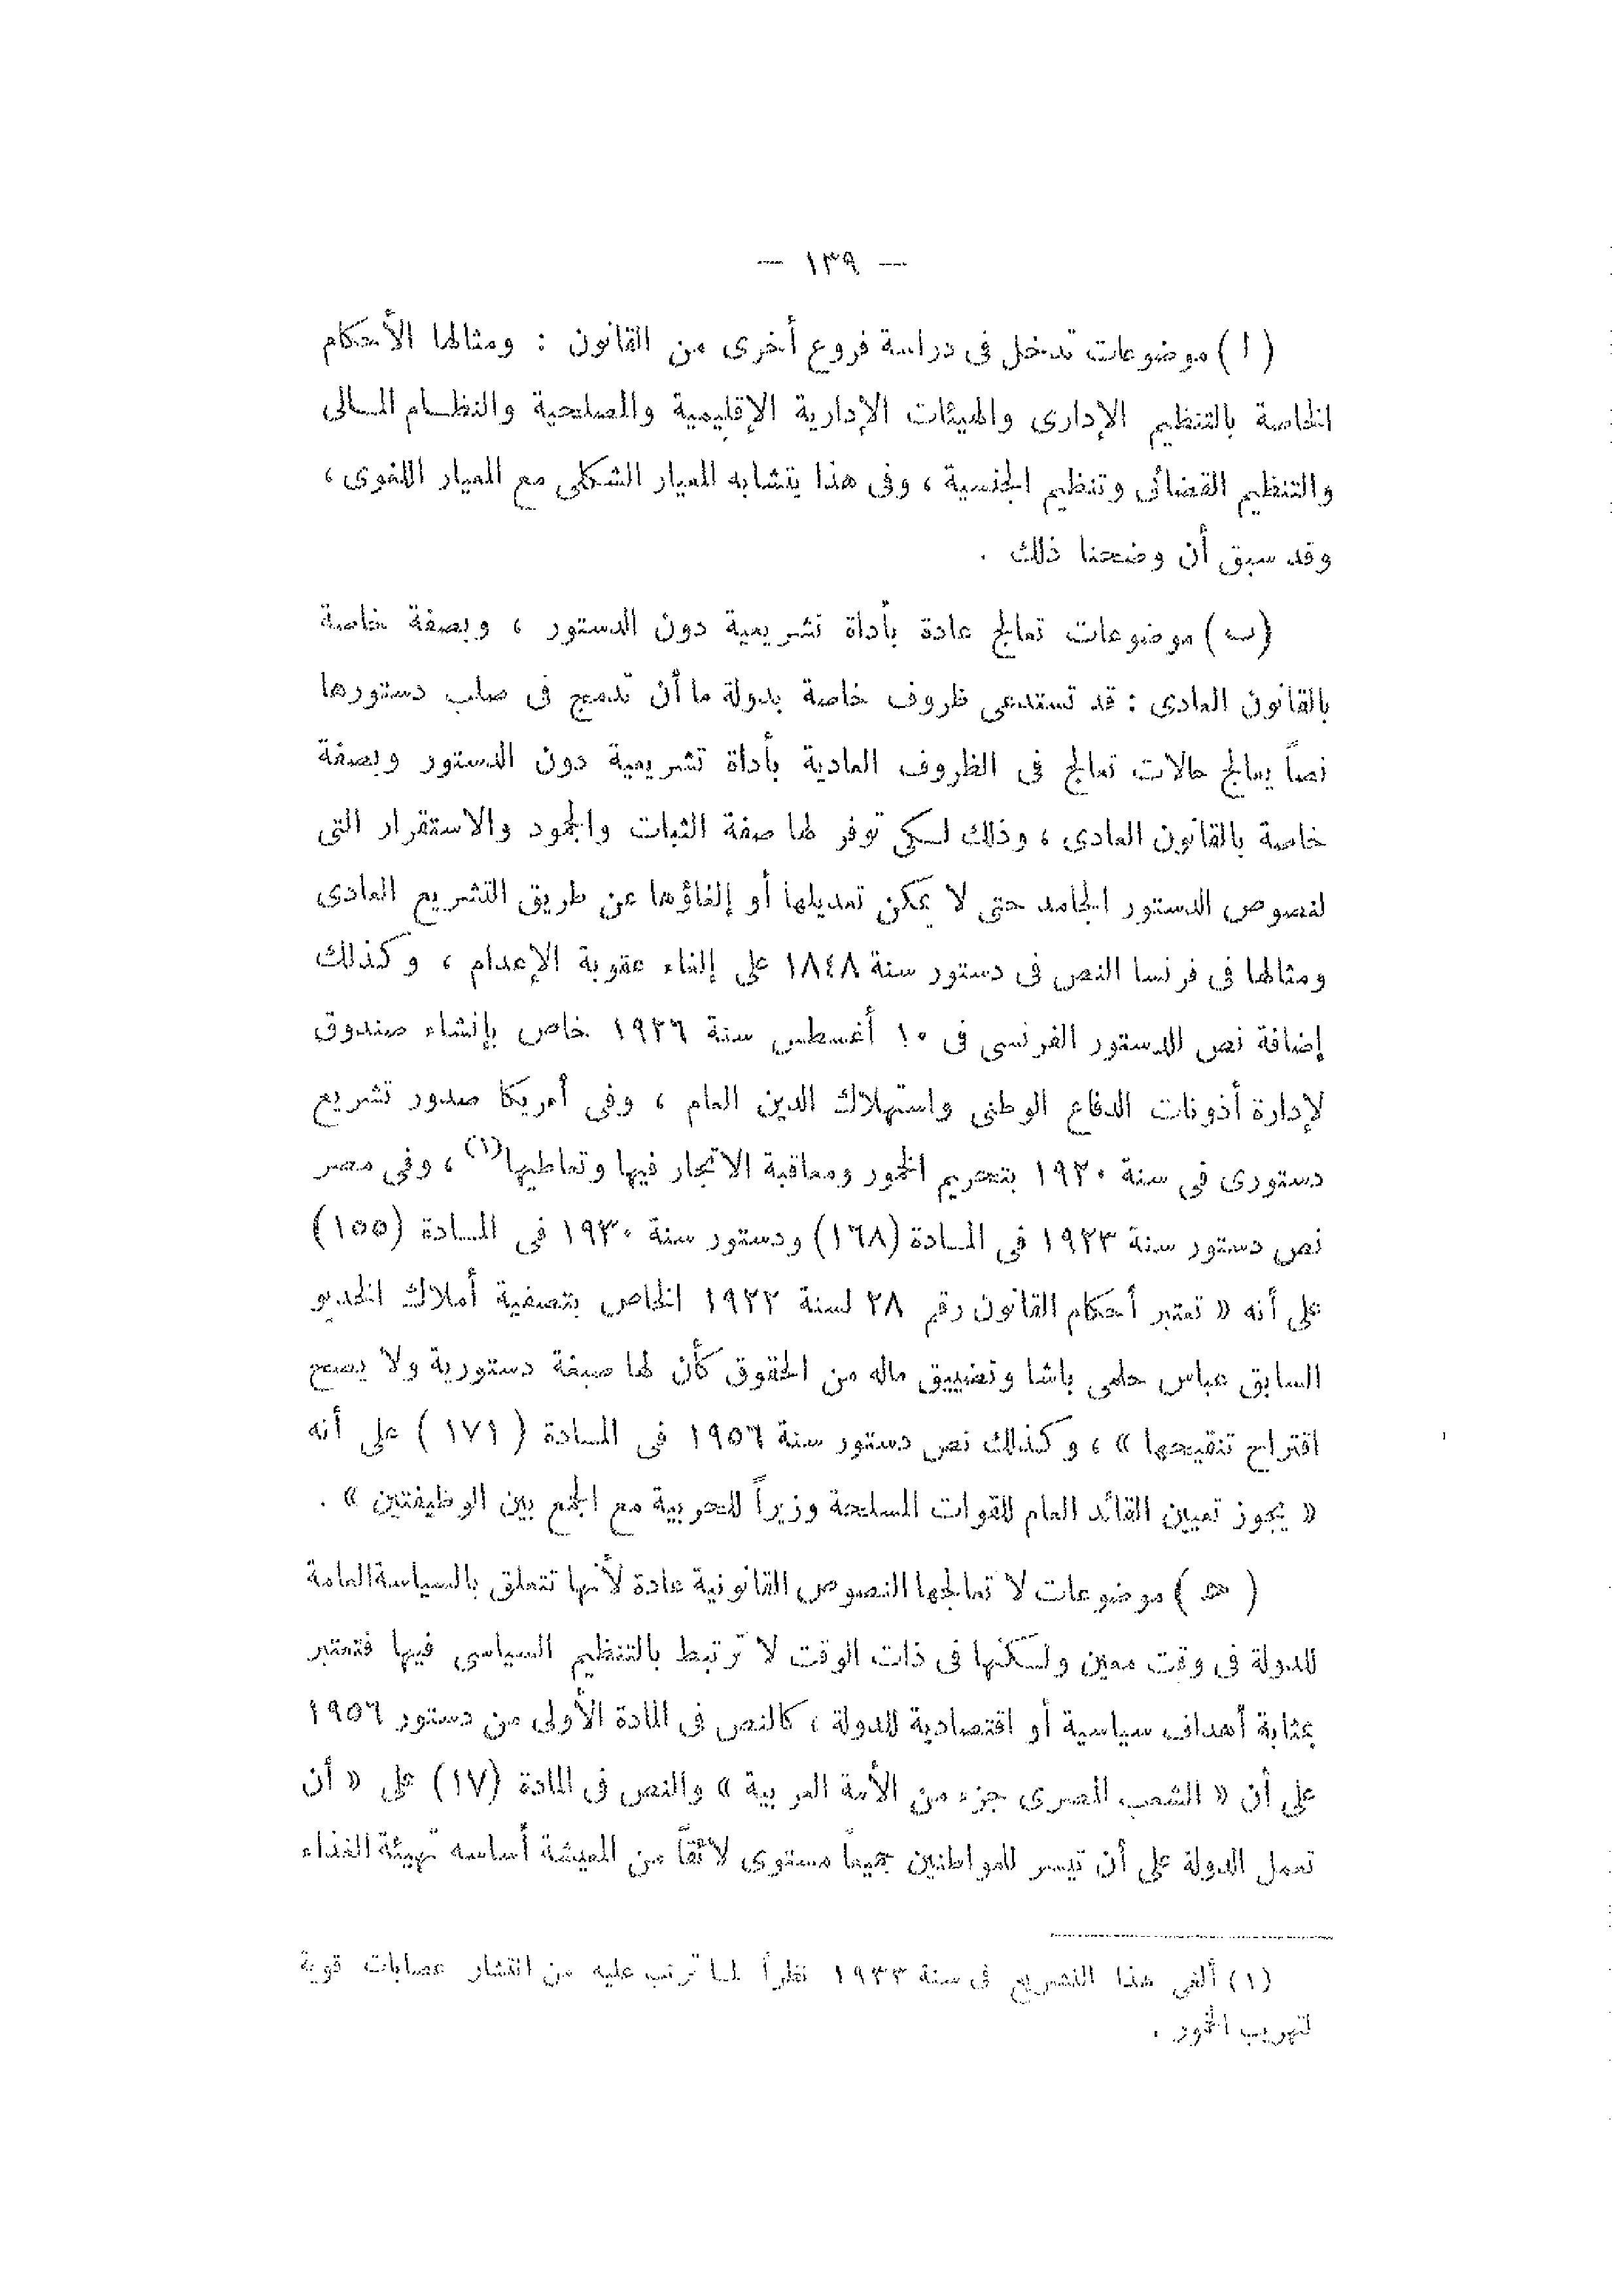 — ١٣٩ —
( ا ) موضوعات تدخل فى دراسة فروع أخرى من القانون : ومثالها الأحكام
الخاصة بالتنظيم الإدارى والهيئات الإدارية الإقليمية والمصلحية والنظام المالى
والتنظيم القضائى وتنظيم الجنسية ، وفى هذا يتشابه المعيار الشكلى مع المعيار اللغوى ،
وقد سبق أن وضحنا ذلك .
(ب) موضوعات تعالج عادة بأداة تشريعية دون الدستور ، وبصفة خاصة
بالقانون العادى : قد تستدعى ظروف خاصة بدولة ما أن تدمج فى صلب دستورها
نصاً يعالج حالات تعالج فى الظروف العادية بأداة تشريعية دون الدستور وبصفة
خاصة بالقانون العادى ، وذلك لكى توفر لها صفة الثبات والجمود والاستقرار التى
لنصوص الدستور الجامد حتى لا يمكن تعديلها أو إلغاؤها عن طريق التشريع العادى
ومثالها فى فرنسا النص فى دستور سنة ١٨٤٨ على إلغاء عقوبة الإعدام ، وكذلك
إضافة نص للدستور الفرنسى فى ١٠ أغسطس سنة ١٩٢٦ خاص بإنشاء صندوق
لإدارة أذونات الدفاع الوطنى واستهلاك الدين العام ، وفى أمريكا صدور تشريع
دستورى فى سنة ١٩٢٠ بتحريم الخمور ومعاقبة الاتجار فيها وتعاطيها(١) ، وفى مصر
نص دستور سنة ١٩٢٣ فى المادة (١٦٨) ودستور سنة ١٩٣٠ فى المادة (١٥٥)
على أنه « تعتبر أحكام القانون رقم ٢٨ لسنة ١٩٢٢ الخاص بتصفية أملاك الخديو
السابق عباس حلمى باشا وتضييق ماله من الحقوق كأن لها صبغة دستورية ولا يصح
اقتراح تنقيحها » ، وكذلك نص دستور سنة ١٩٥٦ فى المادة ( ١٧١ ) على أنه
« يجوز تعيين القائد العام للقوات المسلحة وزيراً للحربية مع الجمع بين الوظيفتين » .
( ح ) موضوعات لا تعالجها النصوص القانونية عادة لأنها تتعلق بالسياسة العامة
للدولة فى وقت معين ولكنها فى ذات الوقت لا ترتبط بالتنظيم السياسى فيها فتعتبر
بمثابة أهداف سياسية أو اقتصادية للدولة ، كالنص فى المادة الأولى من دستور ١٩٥٦
على أن « الشعب المصرى جزء من الأمة العربية » والنص فى المادة (١٧) على « أن
تعمل الدولة على أن تيسر للمواطنين جميعاً مستوى لائقاً من المعيشة أساسه تهيئة الغذاء
(١) ألغى هذا التشريع فى سنة ١٩٣٣ نظراً لما ترتب عليه من انتشار عصابات قوية
لتهريب الخمور .